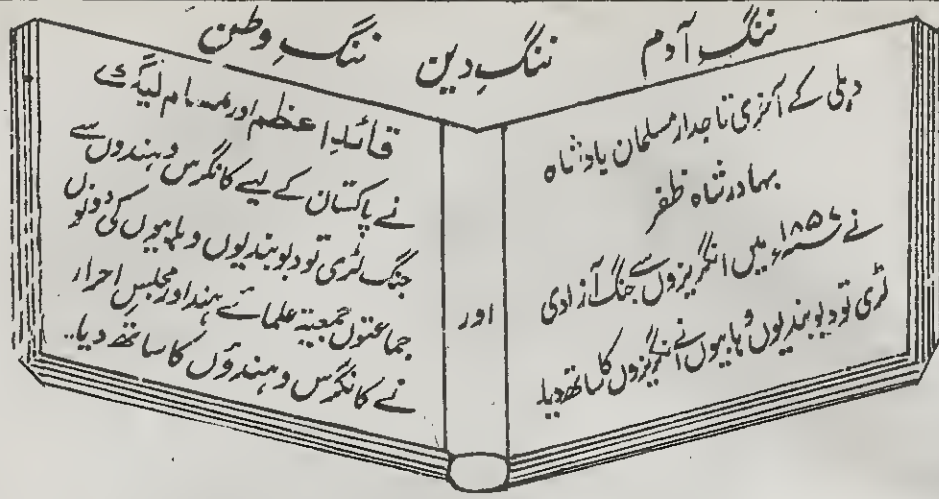 ننگِ آدم ننگِ دین ننگِ وطن
دہلی کے آخری تاجدار مسلمان بادشاہ
بہادر شاہ ظفر
نے ۱۸۵۷ء میں انگریزوں سے جنگ آزادی
لڑی تو دیوبندیوں وہابیوں نے انگریزوں کا ساتھ دیا۔
اور
قائدِ اعظم اور مسلم لیگ
نے پاکستان کے لیے کانگرس و ہندوں سے
جنگ لڑی تو دیوبندیوں وہابیوں کی دونوں
جماعتوں جمعیۃ علمائے ہند اور مجلسِ احرار
نے کانگرس و ہندوؤں کا ساتھ دیا..